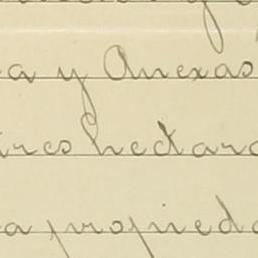 a y Anexas
tres hectar
a propied